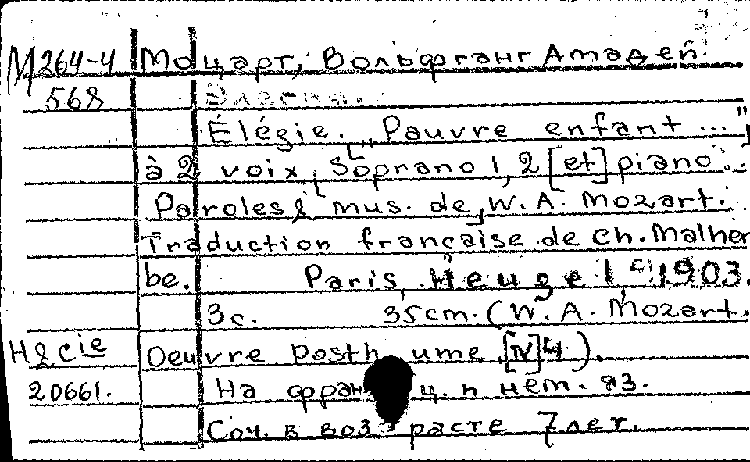 М264-4 Моцарт, Вольфганг Амадей
568 Элегия.
Élégie. "Pauvre enfant ..."
à 2 voix, Soprano 1,2 [et] piano.
Paroles & mus. de W. A. Mozart.
Traduction française de Ch. Malher
be. Paris, Heugel, 1903.
3 с. 35 cm. (W. A. Mozart.
H & Cie Oeuvre posthume [IV] 4).
20661. На франц. и нем. яз.
Соч. в возрасте 7 лет.